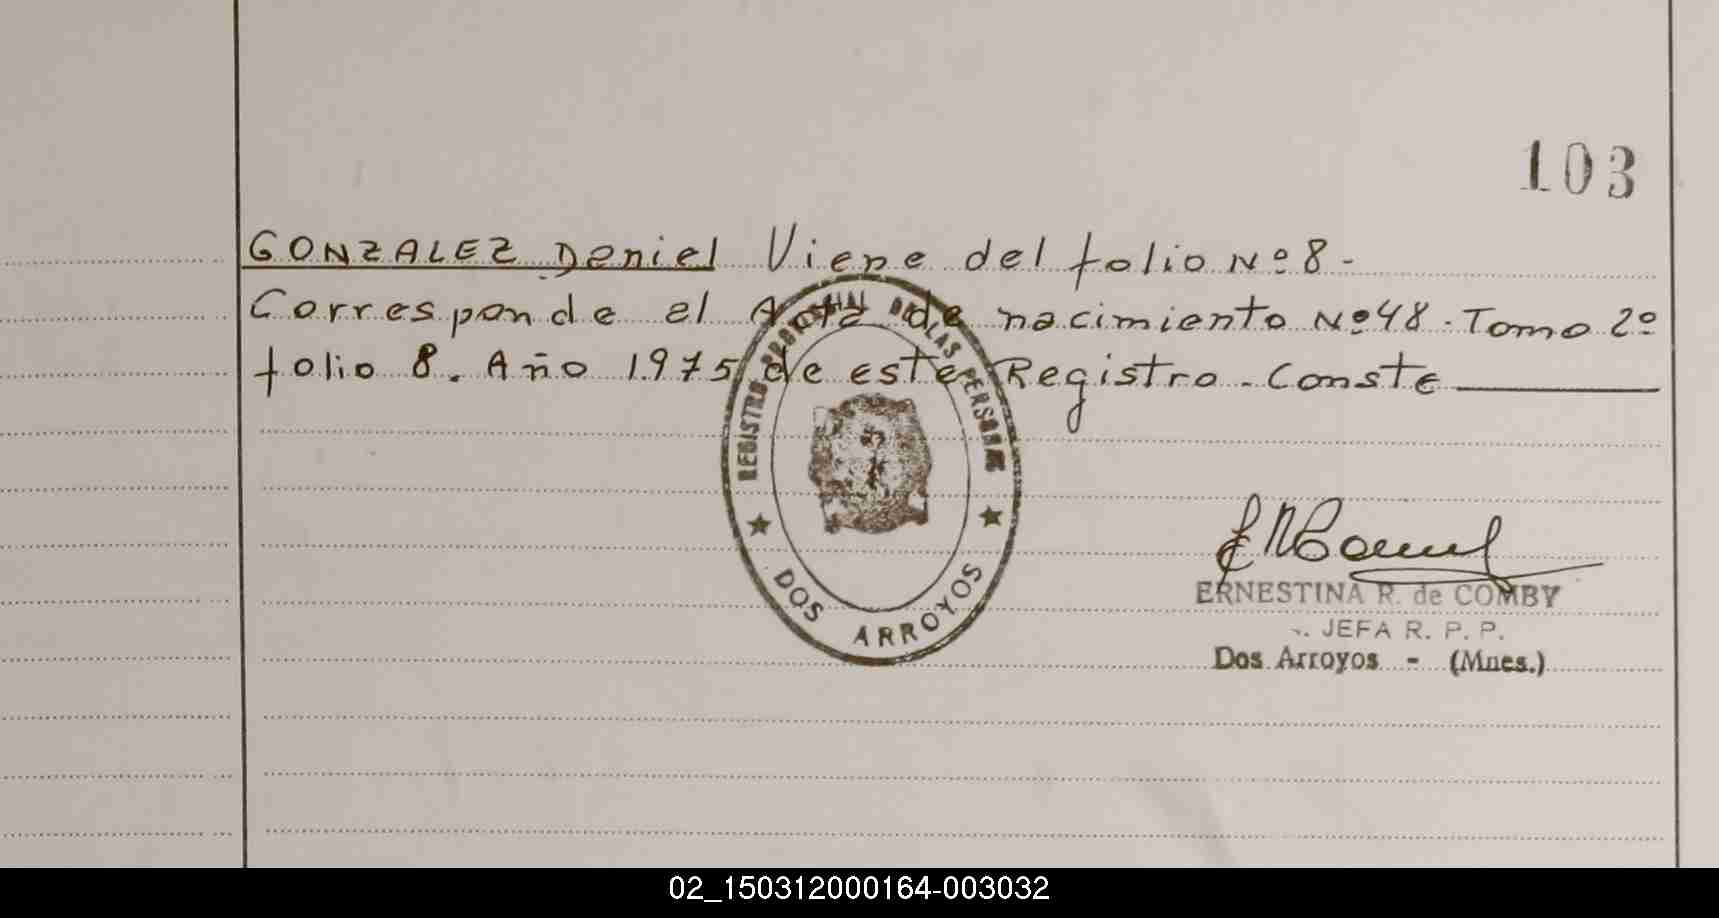 103
GONZALEZ Daniel Viene del folio Nº 8.-
Corresponde al Acta de nacimiento Nº 48. Tomo 2º
folio 8. Año 1975 de este Registro. Conste
REGISTRO PROVINCIAL DE LAS PERSONAS
DOS ARROYOS
ERNESTINA R. de COMBY
JEFA R. P. P.
Dos Arroyos - (Mnes.)
02_150312000164-003032